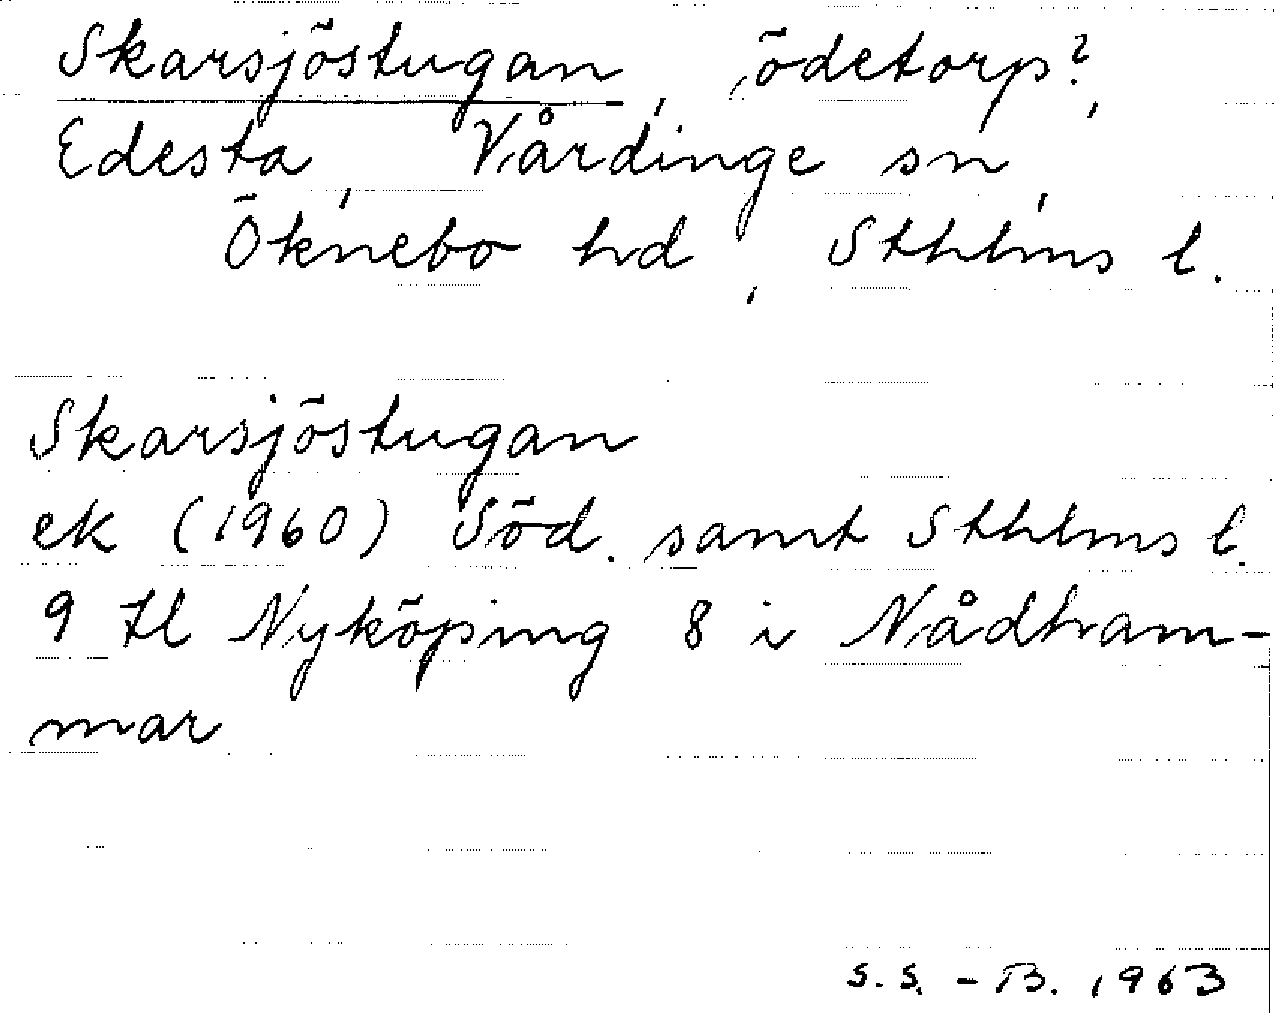 Skarsjöstugan, ödetorp?,
Edesta, Vårdinge sn,
Öknebo hd, Sthlms l.
Skarsjöstugan
ek (1960) Söd. samt Sthlms l.
9 tl Nyköping 8 i Nådham-
mar
S.S. - B. 1963